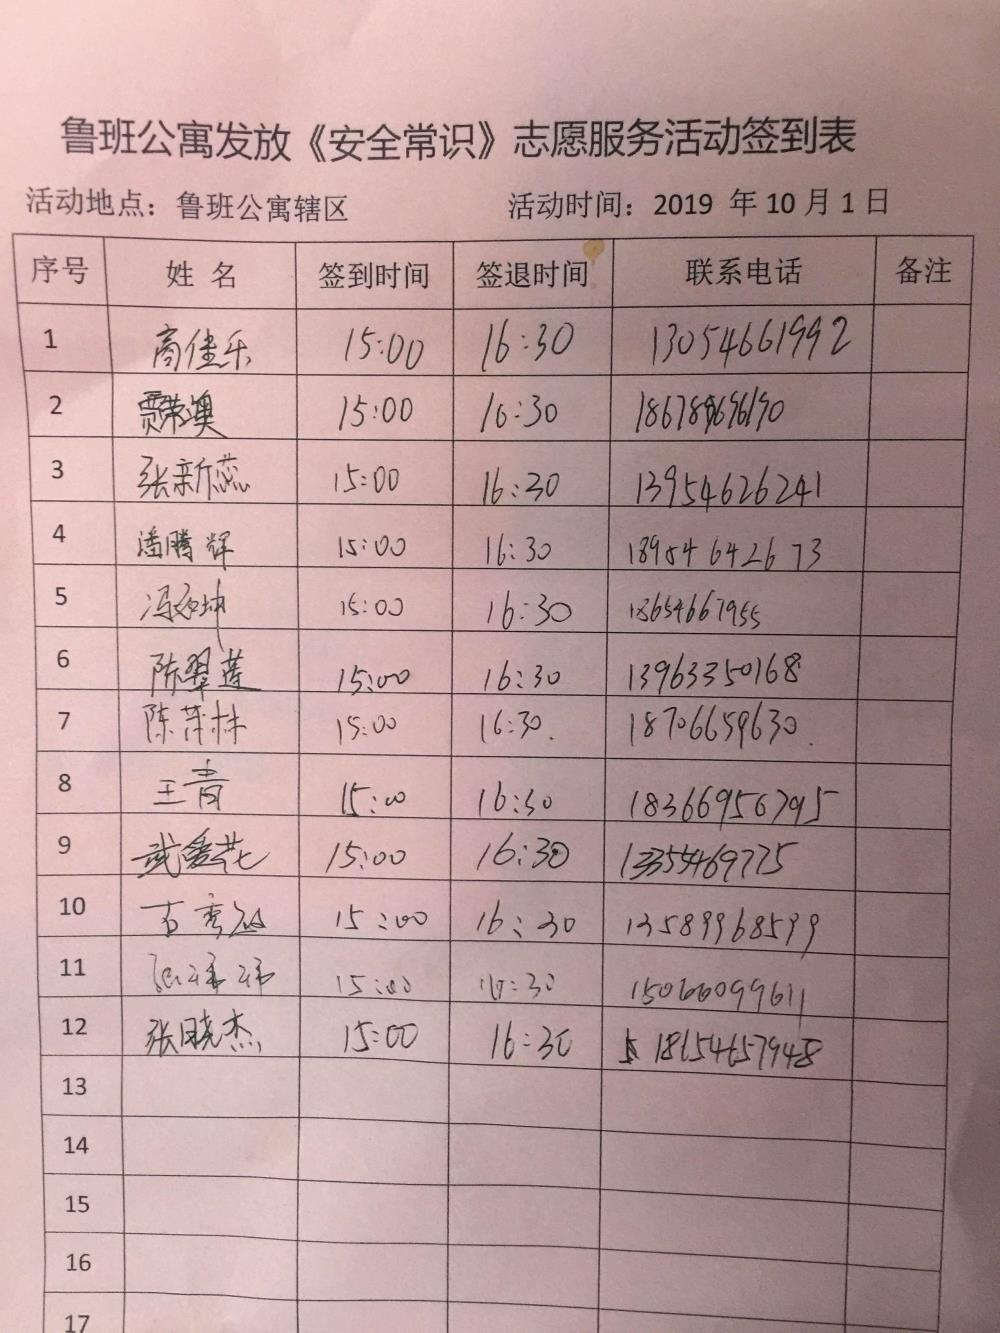 鲁班公寓发放《安全常识》志愿服务活动签到表
活动地点：鲁班公寓辖区 活动时间：2019 年 10 月 1 日
序号 姓 名 签到时间 签退时间 联系电话 备注
1 高佳乐 15:00 16:30 13054661992
2 贾荣澳 15:00 16:30
3 张新蕊 15:00 16:30 13954626241
4 潘腾辉 15:00 16:30 18954642673
5 15:00 16:30 13654667955
6 陈翠莲 15:00 16:30 13963350168
7 陈茂林 15:00 16:30. 18706659630.
8 王青 15:00 16:30 183669567955
9 武爱花 15:00 16:30 13355469775
10 15:00 16:30 13589968599
11 15:00 16:30 15066099611
12 张晓杰 15:00 16:30 18654657948
13
14
15
16
17